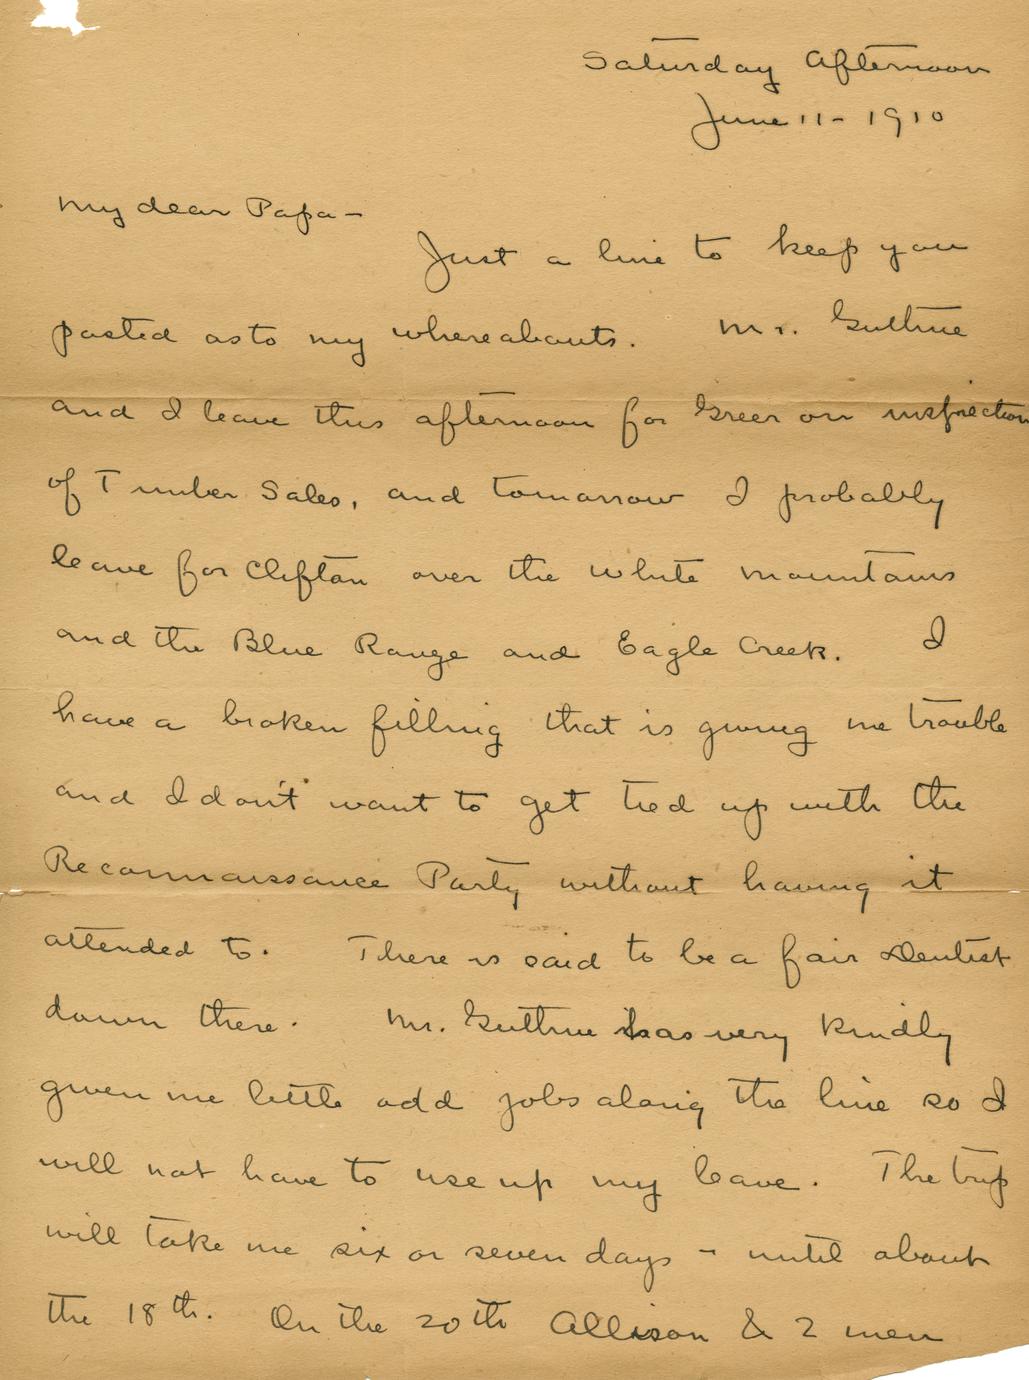 Saturday Afternoon
June 11 - 1910
My dear Papa -
Just a line to keep you
posted as to my whereabouts. Mr. Guthrie
and I leave this afternoon for Greer on inspection
of Timber Sales, and tomorrow I probably
leave for Clifton over the White Mountains
and the Blue Range and Eagle Creek. I
have a broken filling that is giving me trouble
and I don't want to get tied up with the
Reconnaissance Party without having it
attended to. There is said to be a fair Dentist
down there. Mr. Guthrie has very kindly
given me little odd jobs along the line so I
will not have to use up my leave. The trip
will take me six or seven days - until about
the 18th. On the 20th Allison & 2 men